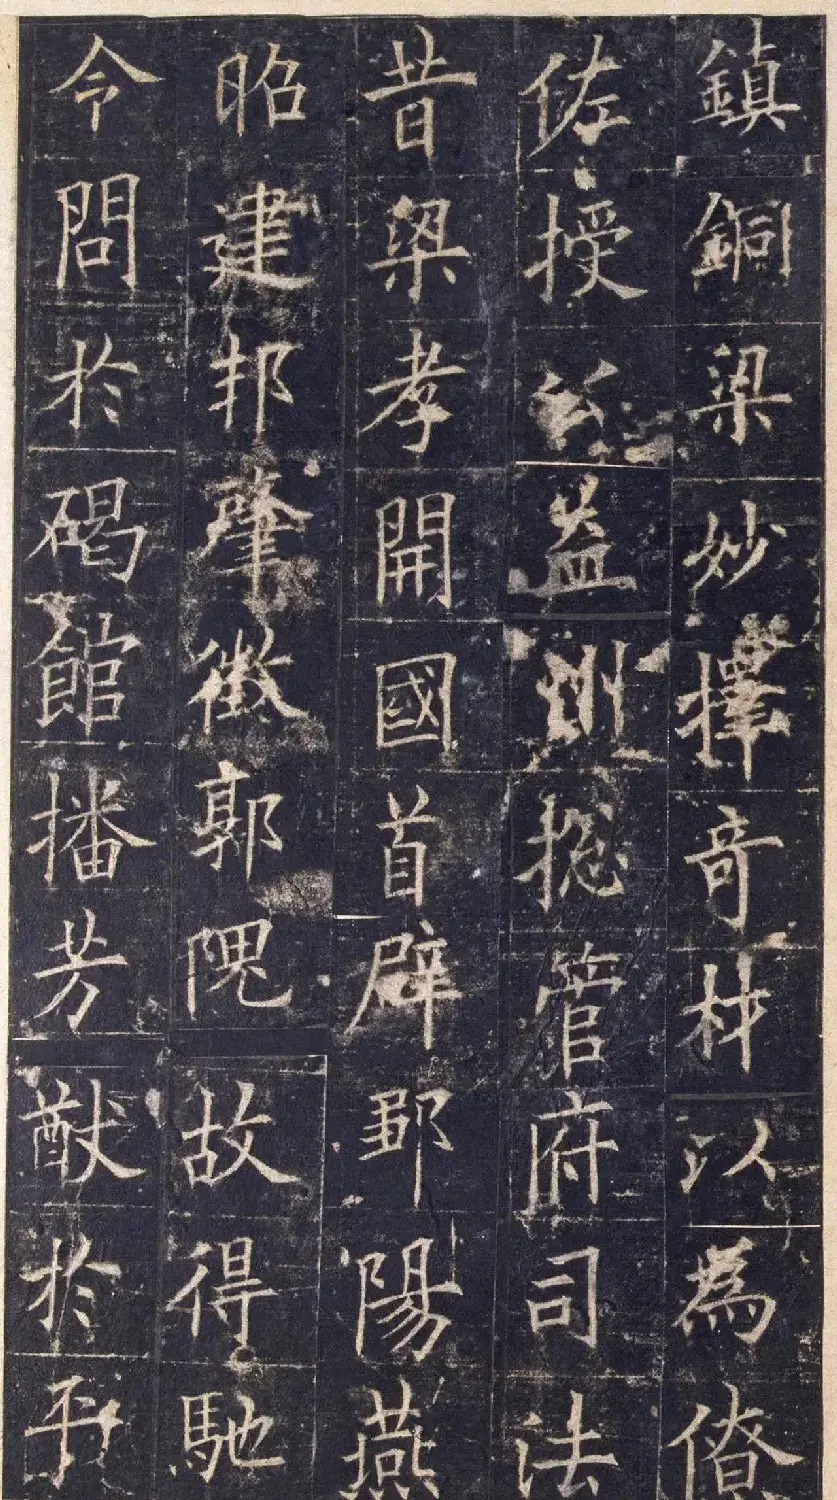 鎮銅梁妙擇奇材以為僚
佐授公益州摠管府司法
昔梁孝開國首辟鄒陽燕
昭建邦肇徵郭隗故得馳
令問於碣館播芳猷於平